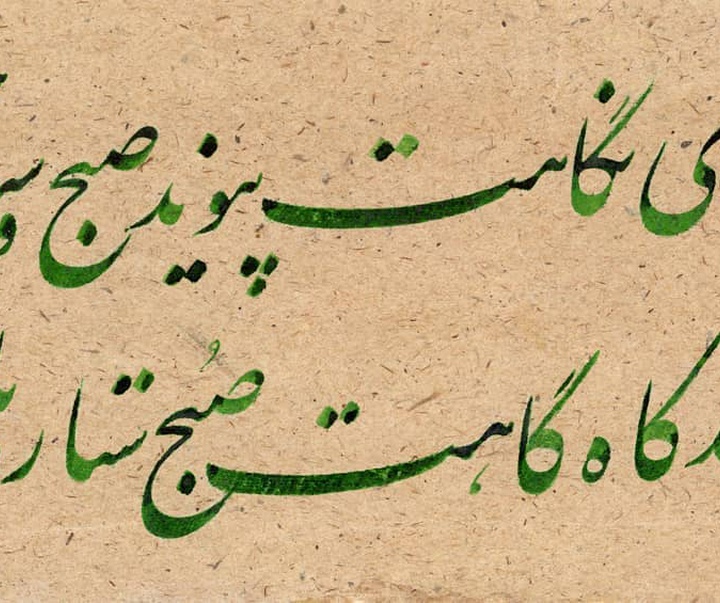 ی نگاهت پیوند صبح و
گاه گاهت صُبح ستار